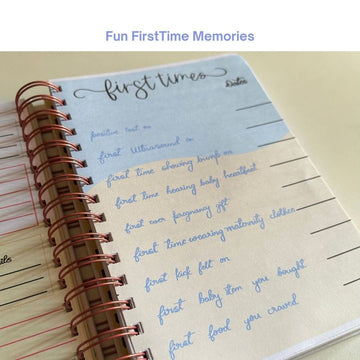 Fun FirstTime Memories
first times
Dates
positive test on
first Ultrasound on
first time showing bump on
first time hearing baby heartbeat
first ever pregnancy gift
first time wearing maternity clothes
first kick felt on
first baby item you bought
first food you craved